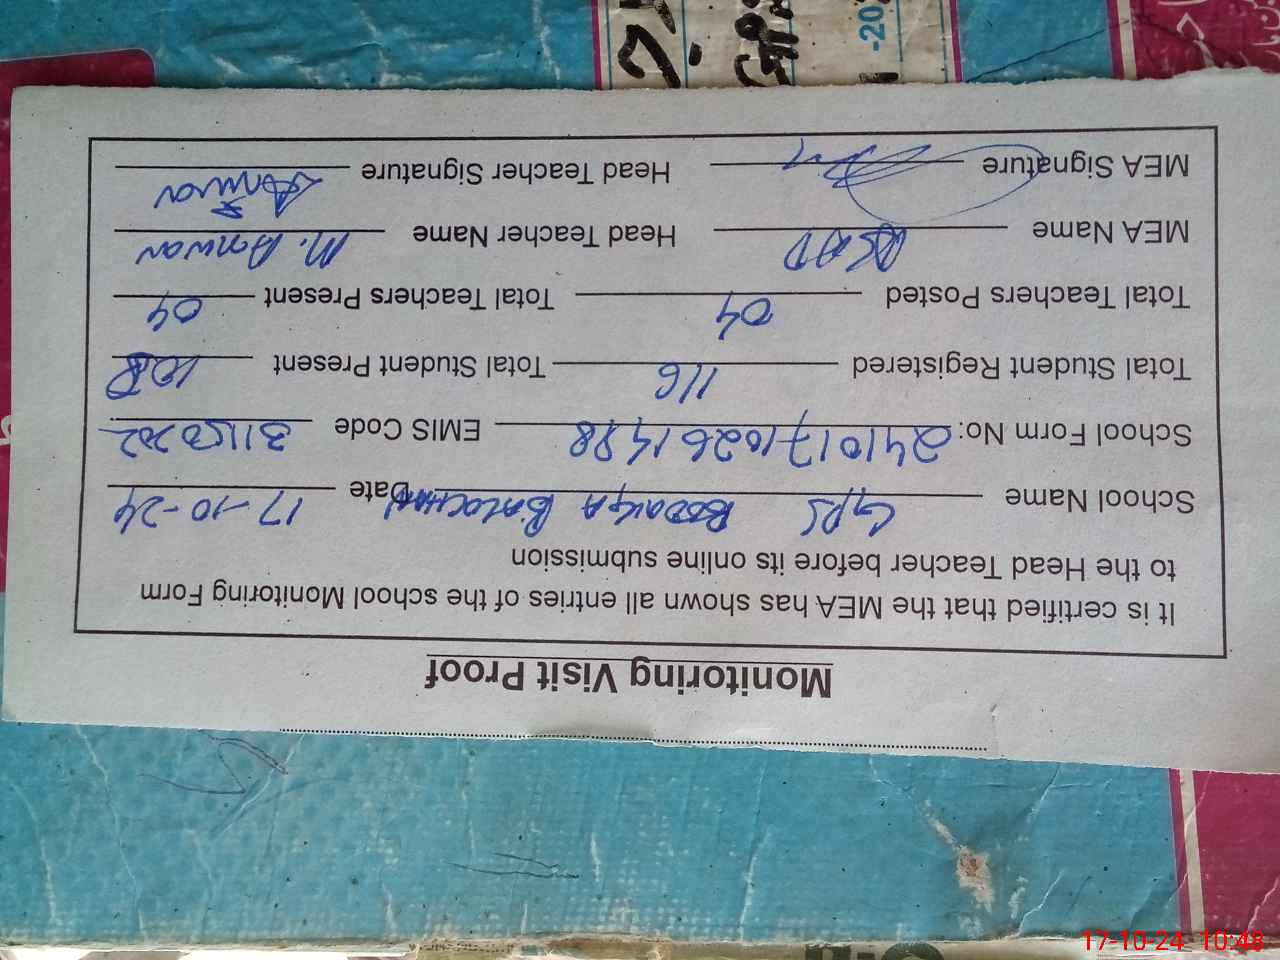 Monitoring Visit Proof
It is certified that the MEA has shown all entries of the school Monitoring Form
to the Head Teacher before its online submission
School Name GPS BALOCHAN Date 17-10-24
School Form No: EMIS Code
Total Student Registered 116 Total Student Present 108
Total Teachers Posted 04 Total Teachers Present 04
MEA Name ASAD Head Teacher Name M. Anwar
MEA Signature Head Teacher Signature Anwar
17-10-24 10:48